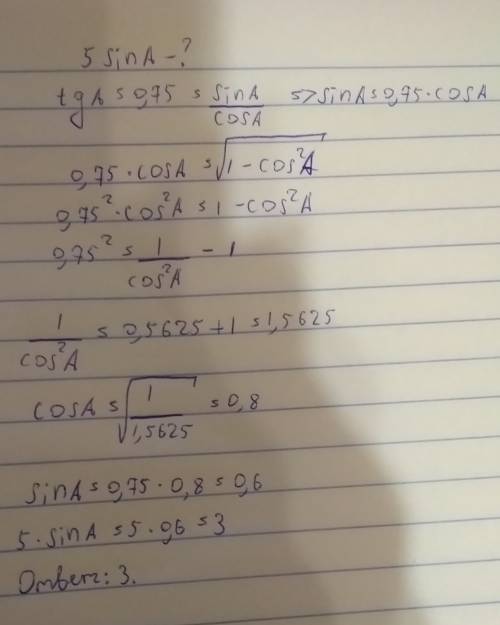 5 sinA - ?
tgA = 0,75 = sinA/cosA => sinA = 0,75 · cosA
0,75 · cosA = √(1 - cos²A)
0,75² · cos²A = 1 - cos²A
0,75² = 1/cos²A - 1
1/cos²A = 0,5625 + 1 = 1,5625
cosA = √(1/1,5625) = 0,8
sinA = 0,75 · 0,8 = 0,6
5 · sinA = 5 · 0,6 = 3
Ответ: 3.